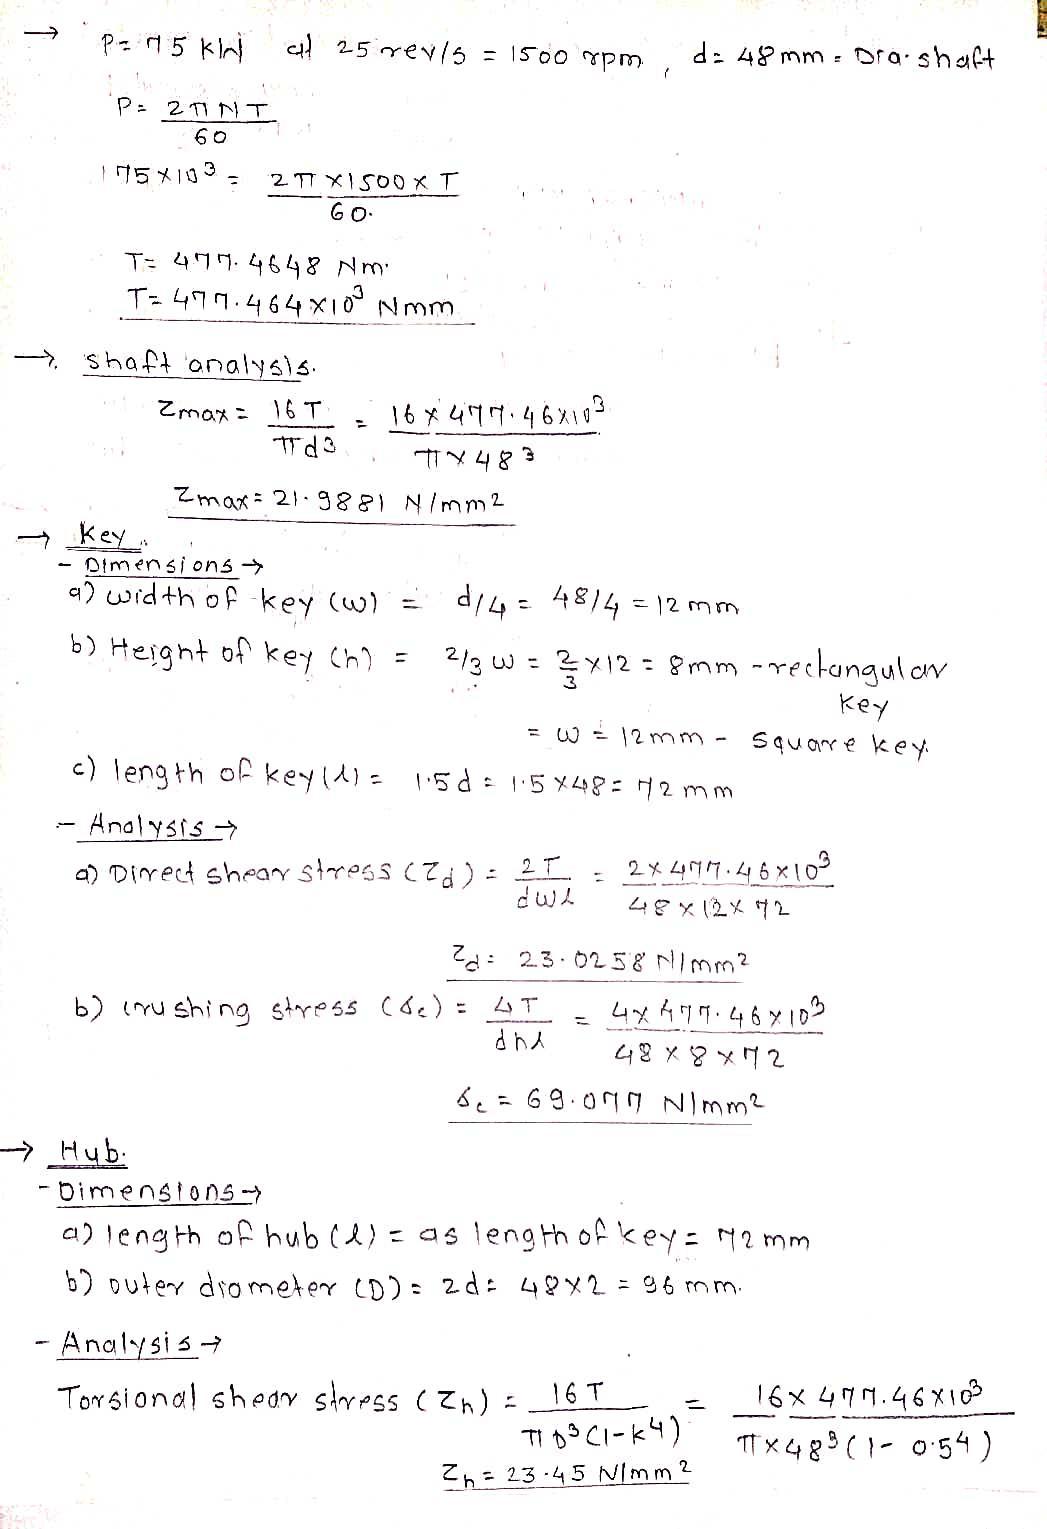 → P = 75 kW at 25 rev/s = 1500 rpm, d = 48 mm = Dia. shaft
P = 2πNT
60
75×10³ = 2π×1500×T
60.
T = 477.4648 Nm.
T = 477.464×10³ Nmm
→ shaft analysis.
τmax = 16T = 16×477.46×10³
πd3 π×48³
τmax = 21.9881 N/mm2
→ Key
- Dimensions →
a) width of key (w) = d/4 = 48/4 = 12 mm
b) Height of key (h) = 2/3 w = 2/3 ×12 = 8mm - rectangular
key
= w = 12mm - square key.
c) length of key (l) = 1.5d = 1.5×48 = 72 mm
- Analysis →
a) Direct shear stress (τd) = 2T = 2×477.46×10³
dwl 48×12×72
τd = 23.0258 N/mm2
b) crushing stress (σc) = 4T = 4×477.46×10³
dhl 48×8×72
σc = 69.077 N/mm2
→ Hub.
- Dimensions →
a) length of hub (l) = as length of key = 72 mm
b) outer diameter (D) = 2d = 48×2 = 96 mm.
- Analysis →
Torsional shear stress (τh) = 16T = 16×477.46×10³
πD³(1-k4) π×48³(1-0.54)
τh = 23.45 N/mm2